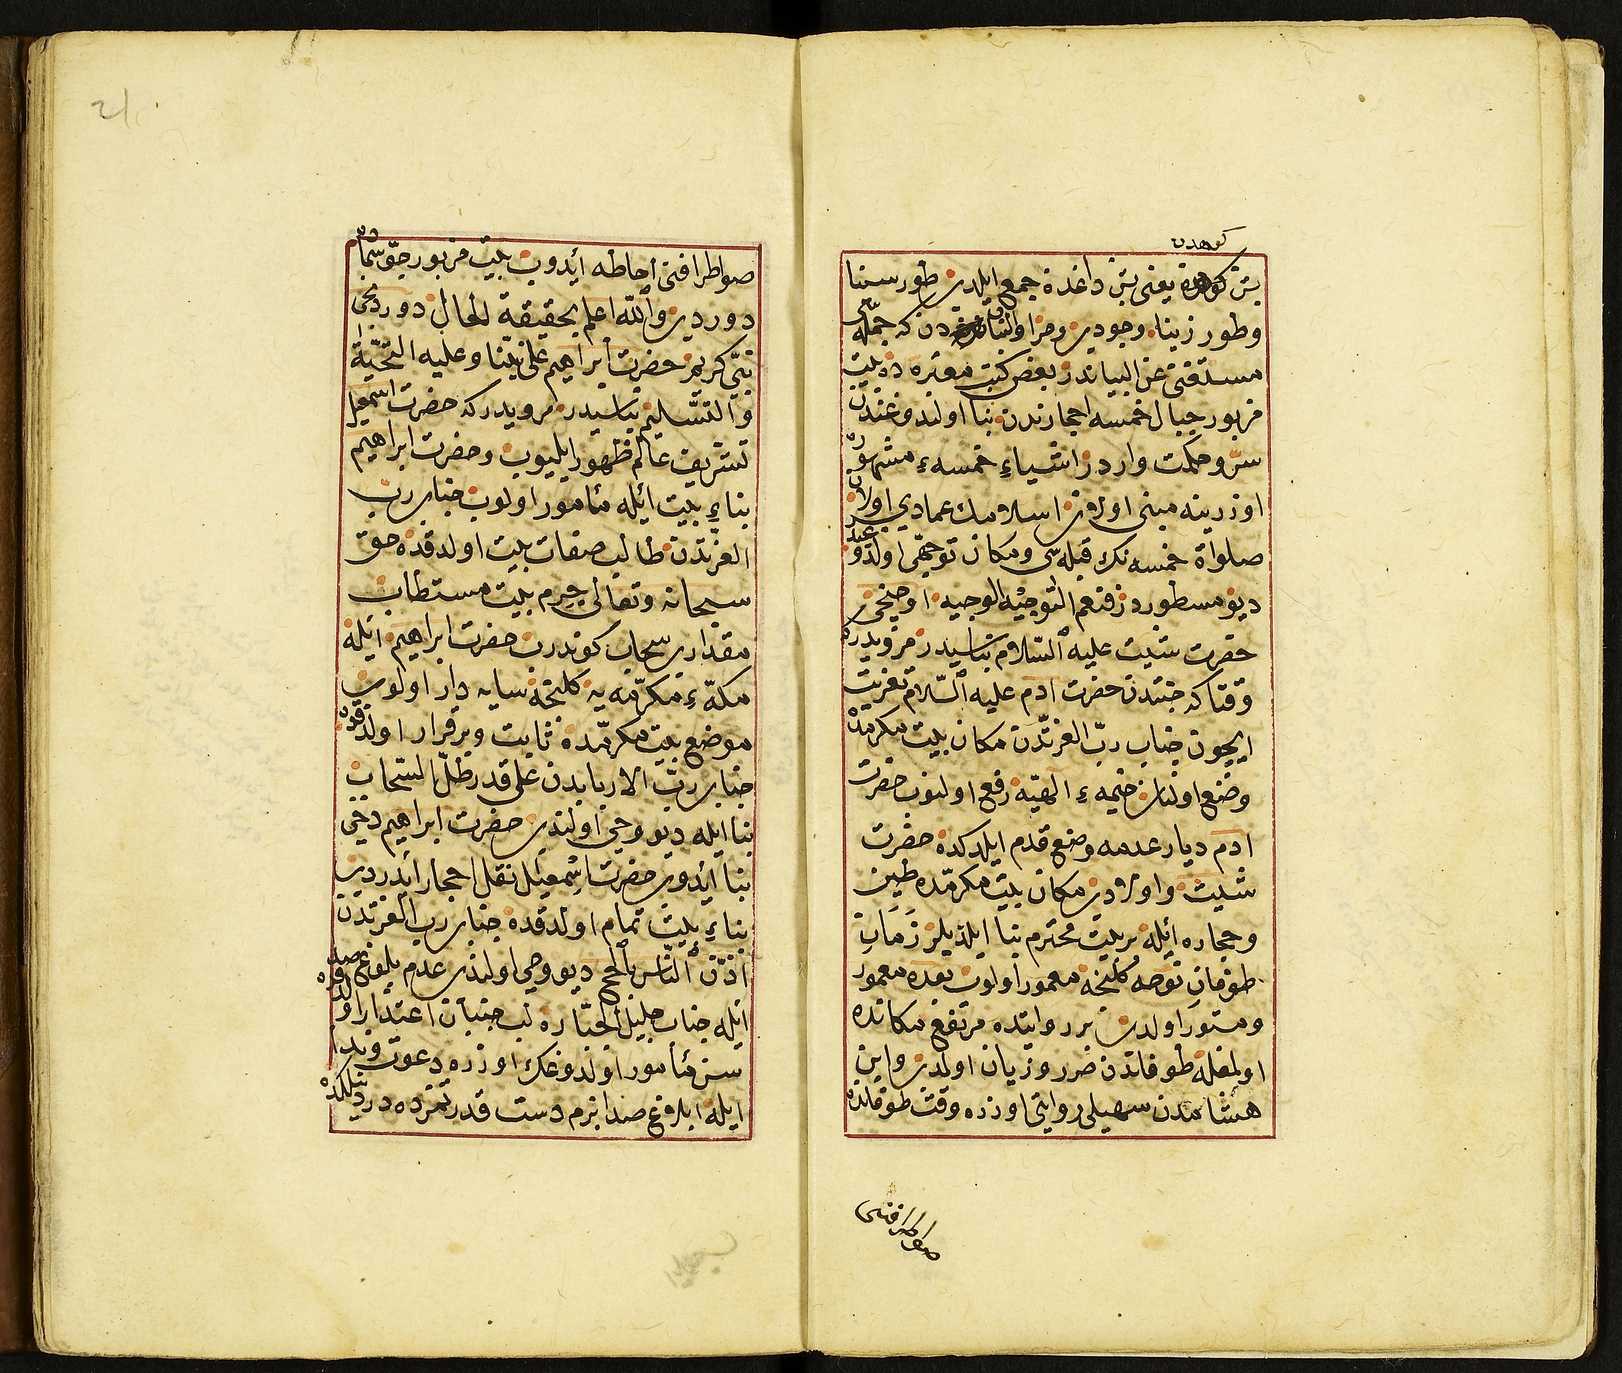 كوهدن
بش كوهدن يعني بش داغدن جمع ايلدى طور سينا
وطور زيتا وجودى وحرا ولبنان دن كه جمله سى
مستغنى عن البياندر بعض كتب معتبره ده بيت
مزبور جبال خمسه احجارندن بنا اولندوغندن
سر وحكمت واردر اشياء خمسهء مشهور
اوزرينه مبنى اولان اسلامك عمادي اولان
صلواة خمسه نك قبله سى ومكان توجهى اولدوغيدر
ديو مسطوردر فنعم التوجيه الوجيه اوچنجى
حضرت شيث عليه السلام بناسيدر مرويدركه
وقتاكه جنتدن حضرت ادم عليه السلام تعزيت
ايچون جناب رب العزتدن مكان بيت مكرمه ده
وضع اولنان خيمهء الهيه رفع اولنوب حضرت
ادم ديار عدمه وضع قدم ايلدكده حضرت
شيث واولادى مكان بيت مكرمده طين
وحجاره ايله بر بيت محترم بنا ايلديلر زمان
طوفان نوحه كلنجه معمور اولوب بعده مغمور
ومستور اولدى بر روايتده مرتفع مكانده
اولمغله طوفاندن ضرر وزيان اولمدى وابن
هشامدن سهيلى روايتى اوزره وقت طوفانده
صواطرافنى
صواطرافنى احاطه ايدوب بيت مزبور جو سماده
دوردى والله اعلم بحقيقة الحال دوردنجى
نبى كريم حضرت ابراهيم على نبينا وعليه التحية
والتسليم بناسيدر مرويدركه حضرت اسمعيل
تشريف عالم ظهور ايليوب وحضرت ابراهيم
بناء بيت ايله مأمور اولوب جناب رب
العزتدن طالب صفات بيت اولدقده حق
سبحانه وتعالى جرم بيت مستطاب
مقدارى سحاب كوندرب حضرت ابراهيم ايله
مكهء مكرمه يه كلنجه سايه دار اولوب
موضع بيت مكرمده ثابت وبرقرار اولدقده
جناب رب الاربابدن على قدر ظل السحاب
بنا ايله ديو وحى اولندى حضرت ابراهيم دخى
بنا ايدوب حضرت اسمعيل نقل احجار ايدردى
بناء بيت تمام اولدقده جناب رب العزتدن
اذن الناس بالحج ديو وحى اولندى عدم بلوغ صدا
ايله جناب جليل الجباره لب جنبان اعتذار اولدقده
سن مأمور اولدوغك اوزره دعوت وندا
ايله ابلاغ صدا بزم دست قدرتمزده در ديلدكده